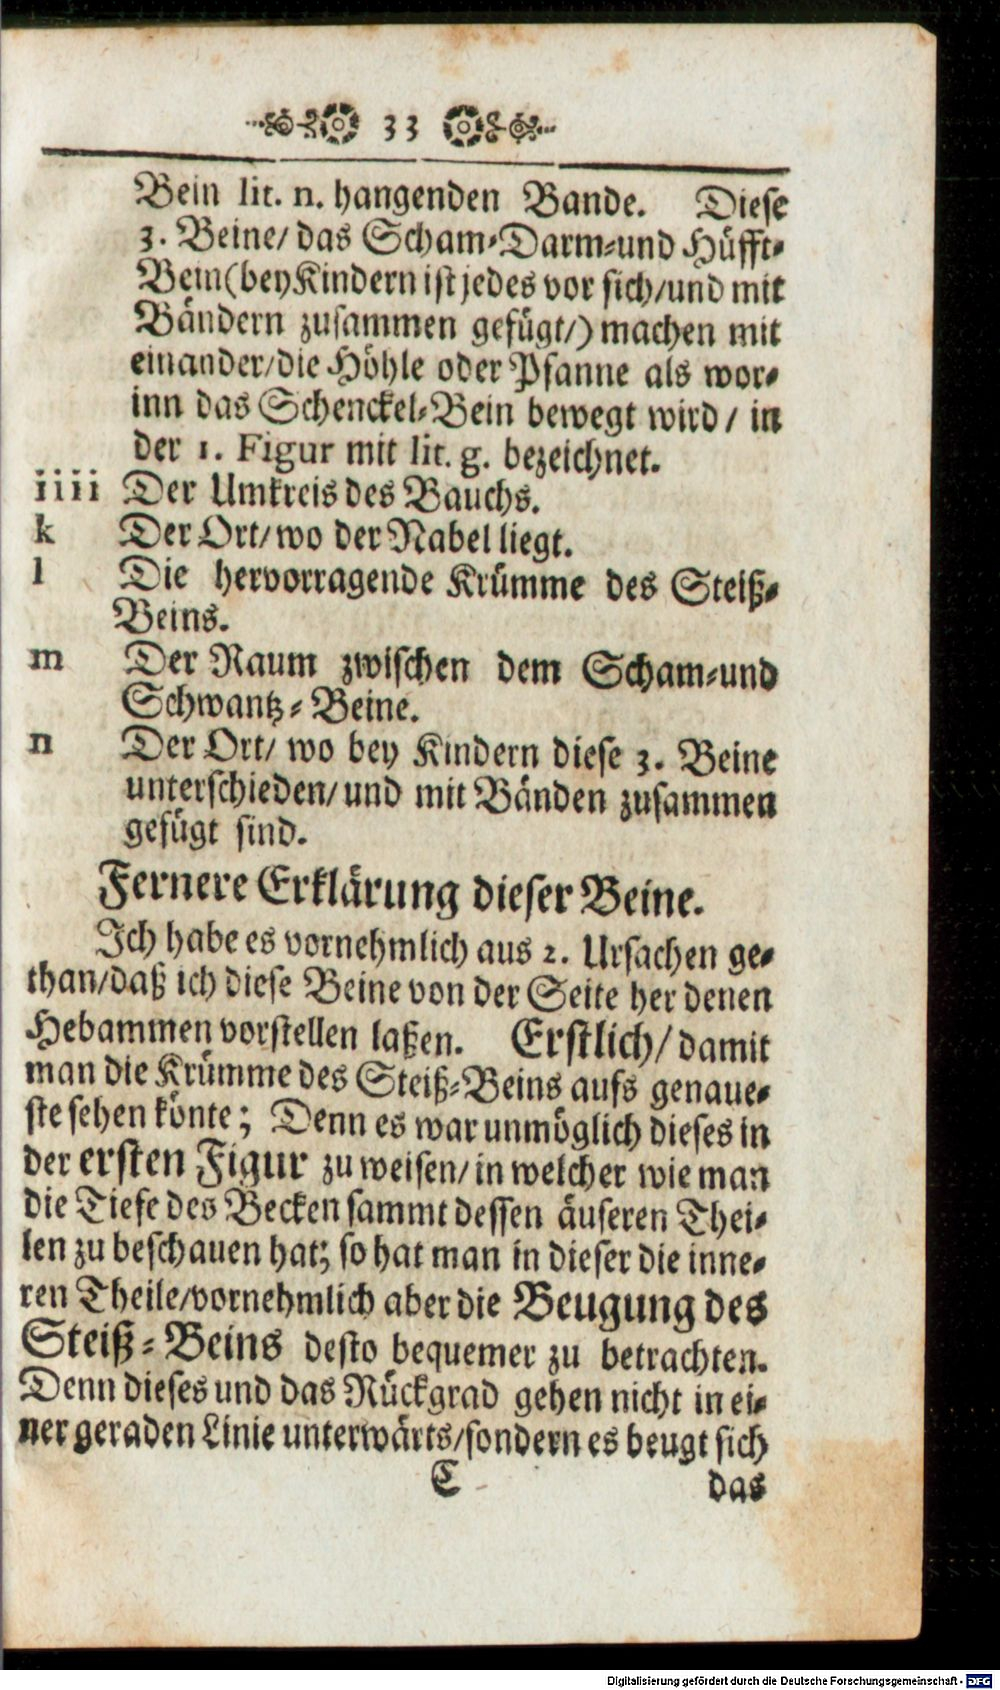 33
Bein lit. n. hangenden Bande. Diese
3. Beine/ das Scham-Darm-und Hüfft-
Bein (bey Kindern ist jedes vor sich/und mit
Bändern zusammen gefügt/) machen mit
einander/die Höhle oder Pfanne als wor-
inn das Schenckel-Bein bewegt wird/ in
der 1. Figur mit lit. g. bezeichnet.
iiii Der Umkreis des Bauchs.
k Der Ort/wo der Nabel liegt.
l Die hervorragende Krümme des Steiß-
Beins.
m Der Raum zwischen dem Scham-und
Schwantz-Beine.
n Der Ort/ wo bey Kindern diese 3. Beine
unterschieden/und mit Bänden zusammen
gefügt sind.
Fernere Erklärung dieser Beine.
Ich habe es vornehmlich aus 2. Ursachen ge-
than/daß ich diese Beine von der Seite her denen
Hebammen vorstellen laßen. Erstlich/ damit
man die Krümme des Steiß-Beins aufs genaue-
ste sehen könte; Denn es war unmöglich dieses in
der ersten Figur zu weisen/in welcher wie man
die Tiefe des Becken sammt dessen äuseren Thei-
len zu beschauen hat; so hat man in dieser die inne-
ren Theile/vornehmlich aber die Beugung des
Steiß-Beins desto bequemer zu betrachten.
Denn dieses und das Rückgrad gehen nicht in ei-
ner geraden Linie unterwärts/sondern es beugt sich
C das
Digitalisierung gefördert durch die Deutsche Forschungsgemeinschaft - DFG